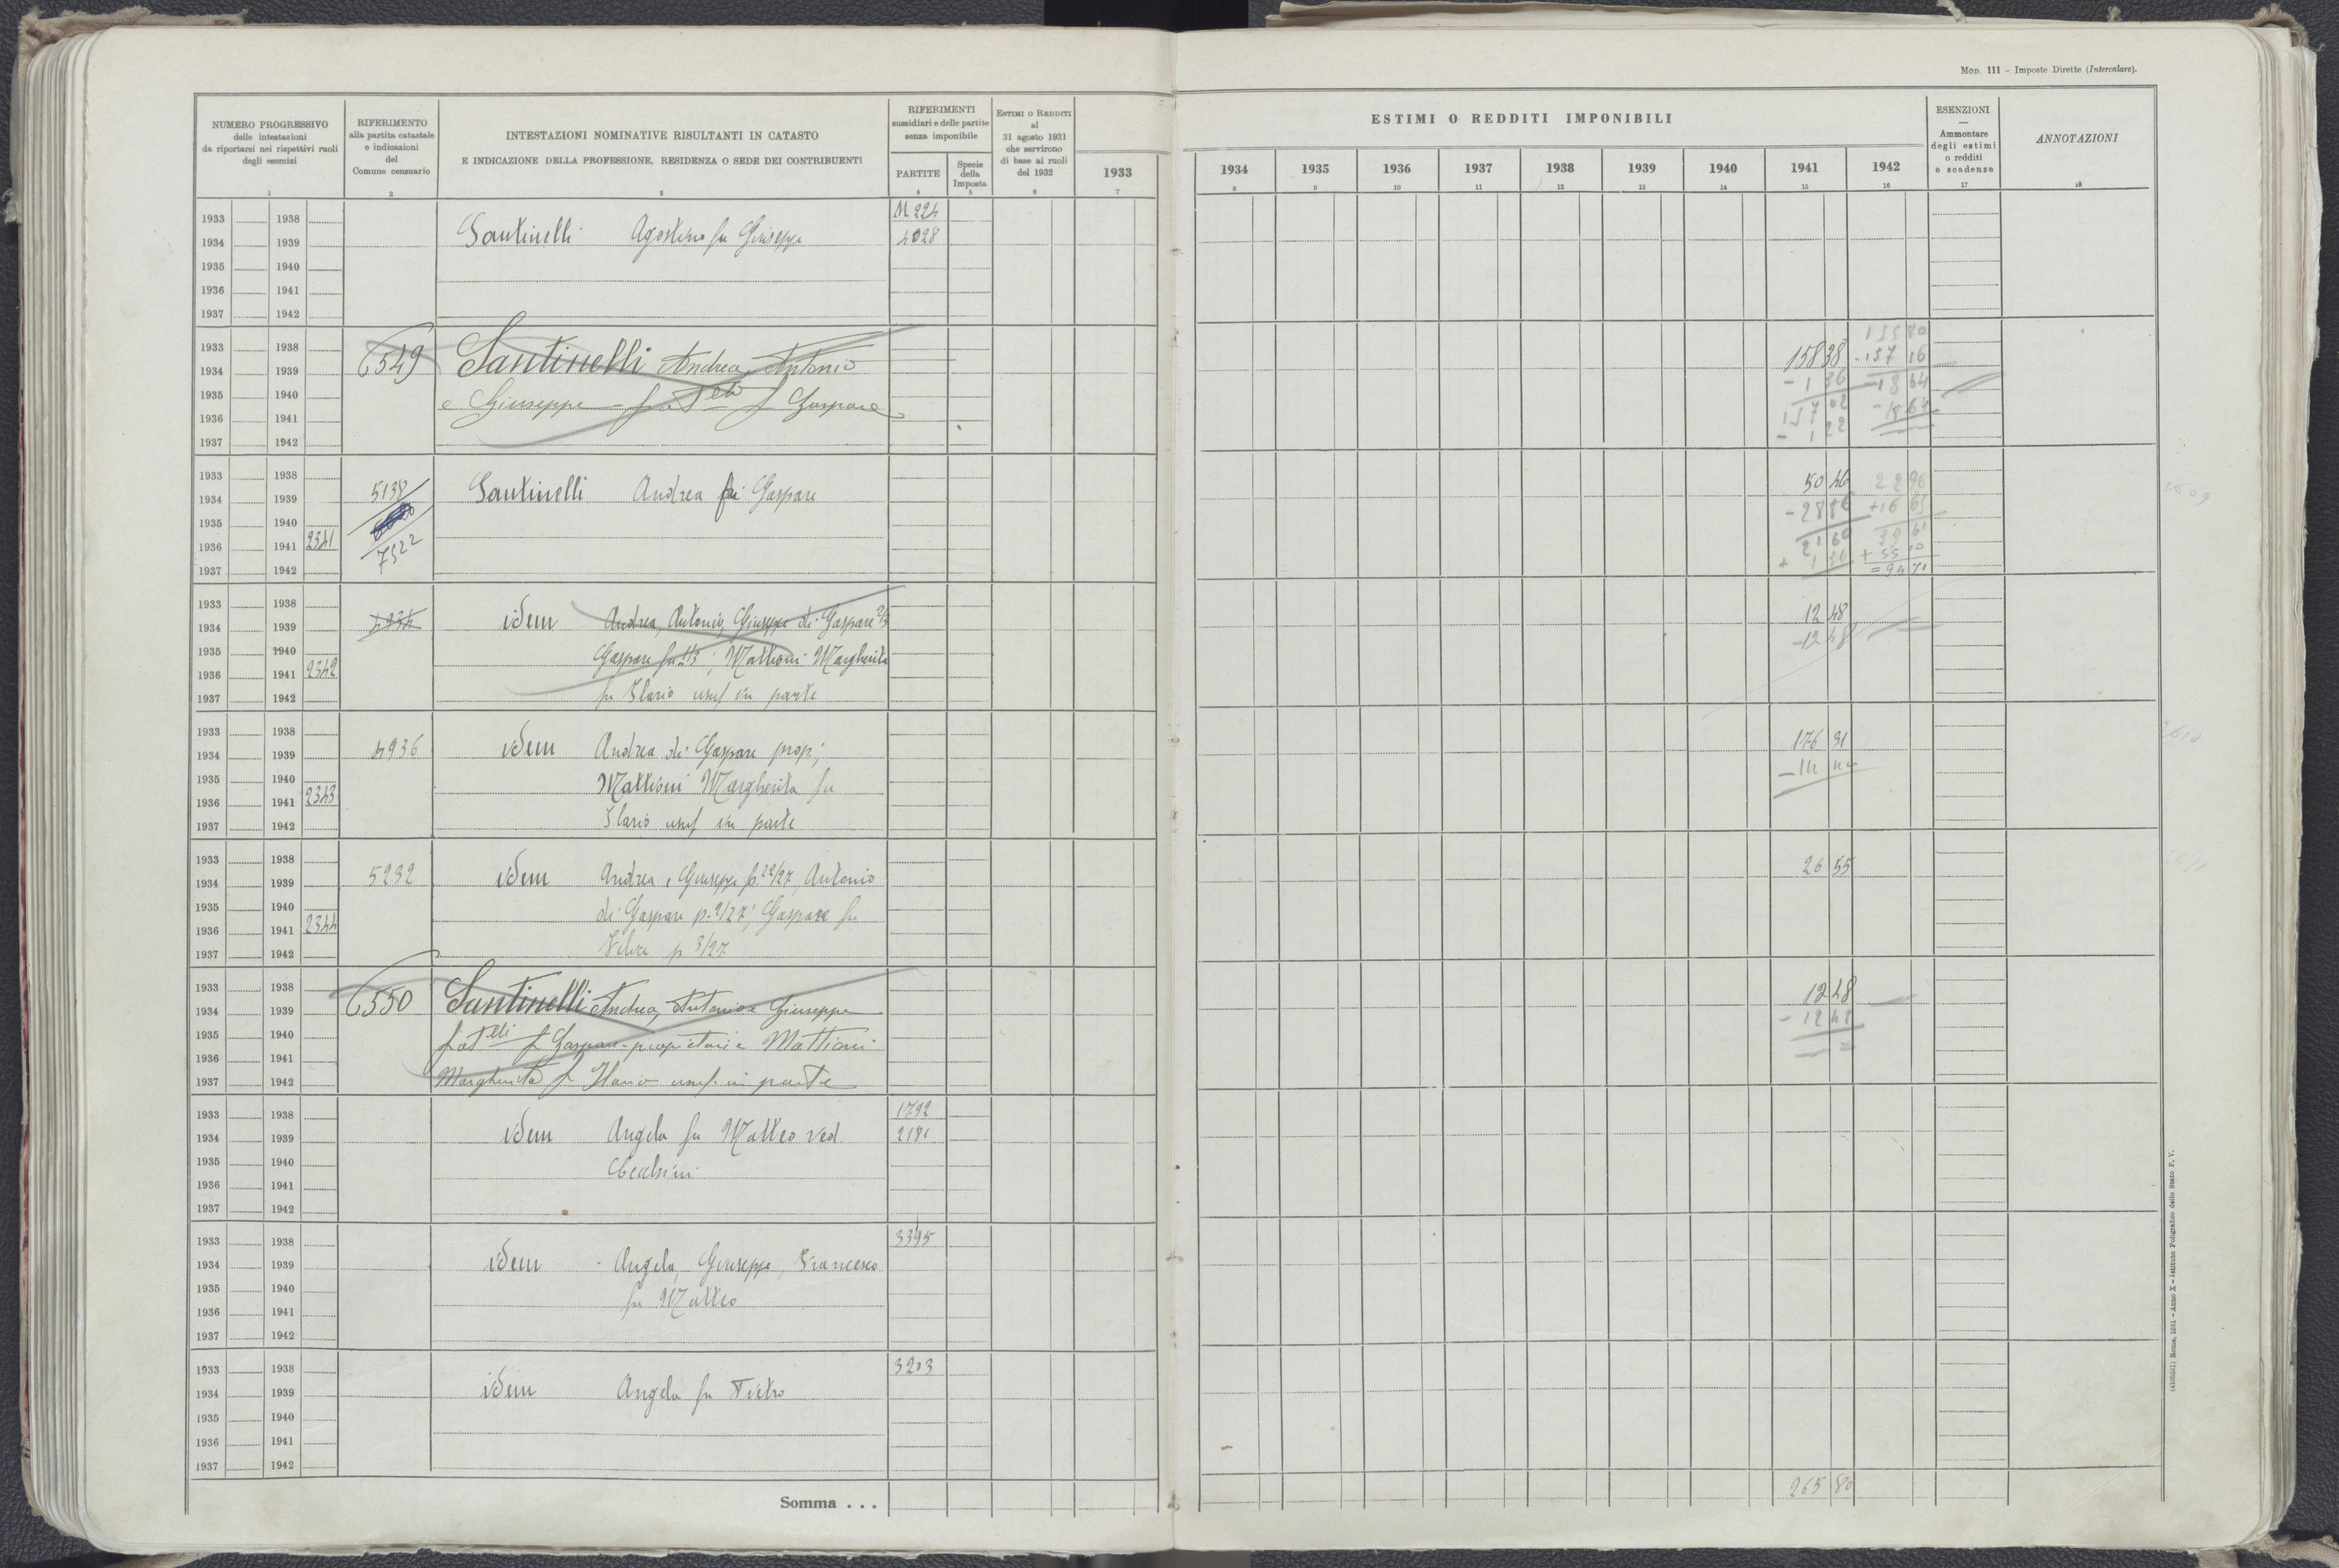 MOD. 111 - Imposte Dirette (Intercalare).
NUMERO PROGRESSIVO
delle intestazioni
da riportarsi nei rispettivi ruoli
degli esercizi
1
RIFERIMENTO
alla partita catastale
e indicazioni
del
Comune censuario
2
INTESTAZIONI NOMINATIVE RISULTANTI IN CATASTO
E INDICAZIONE DELLA PROFESSIONE, RESIDENZA O SEDE DEI CONTRIBUENTI
3
RIFERIMENTI
sussidiari e delle partite
senza imponibile
PARTITE
4
Specie
della
Imposta
5
ESTIMI O REDDITI
al
31 agosto 1931
che servirono
di base ai ruoli
del 1932
6
1933
7
ESTIMI O REDDITI IMPONIBILI
1934 1935 1936 1937 1938 1939 1940 1941 1942
8 9 10 11 12 13 14 15 16
ESENZIONI
—
Ammontare
degli estimi
o redditi
e scadenze
17
ANNOTAZIONI
18
1933 1938 M 224
1934 1939 Santinelli Agostino fu Giuseppe 4028
1935 1940
1936 1941
1937 1942
1933 1938 158 38 -157 16
1934 1939 6549 Santinelli Andrea, Antonio
- 1 36 -18 64
1935 1940 e Giuseppe f.lli f Gaspare
157 02 -18 64
1936 1941
- 1 22
1937 1942
1933 1938 50 46 22 96
1934 1939 5138 Santinelli Andrea fu Gaspare
-28 86 +16 65
1935 1940
21 60 39 61
1936 1941 2341 7522
+ 1 36 + 55 10
1937 1942 = 94 71
1933 1938
1934 1939 4934 idem Andrea, Antonio, Giuseppe di Gaspare 2/3 12 48
-12 48
1935 1940 Gaspare fu 1/3; Mattioni Margherita
1936 1941 2342
1937 1942 fu Ilario usuf in parte
1933 1938
1934 1939 4936 idem Andrea di Gaspare prop; 176 31
1935 1940 Mattioni Margherita fu
1936 1941 2343
1937 1942 Ilario usuf in parte
1933 1938
1934 1939 5232 idem Andrea e Giuseppe p. 22/27, Antonio 26 55
1935 1940 di Gaspare p. 2/27; Gaspare fu
1936 1941 2344
1937 1942 p 3/27
1933 1938
1934 1939 6550 Santinelli Andrea, Antonio e Giuseppe 12 48
1935 1940 f.lli f Gaspare - proprietari e Mattioni - 12 48
1936 1941
1937 1942 Margherita f Ilario usuf. in parte
1933 1938 1792
1934 1939 idem Angela fu Matteo ved. 2181
1935 1940 Cecchini
1936 1941
1937 1942
1933 1938 3395
1934 1939 idem Angela, Giuseppe, Francesco
1935 1940 fu Matteo
1936 1941
1937 1942
1933 1938 3203
1934 1939 idem Angela fu Pietro
1935 1940
1936 1941
1937 1942
Somma . . . 265 80
Roma, 1931 - Anno X - Istituto Poligrafico dello Stato P. V.